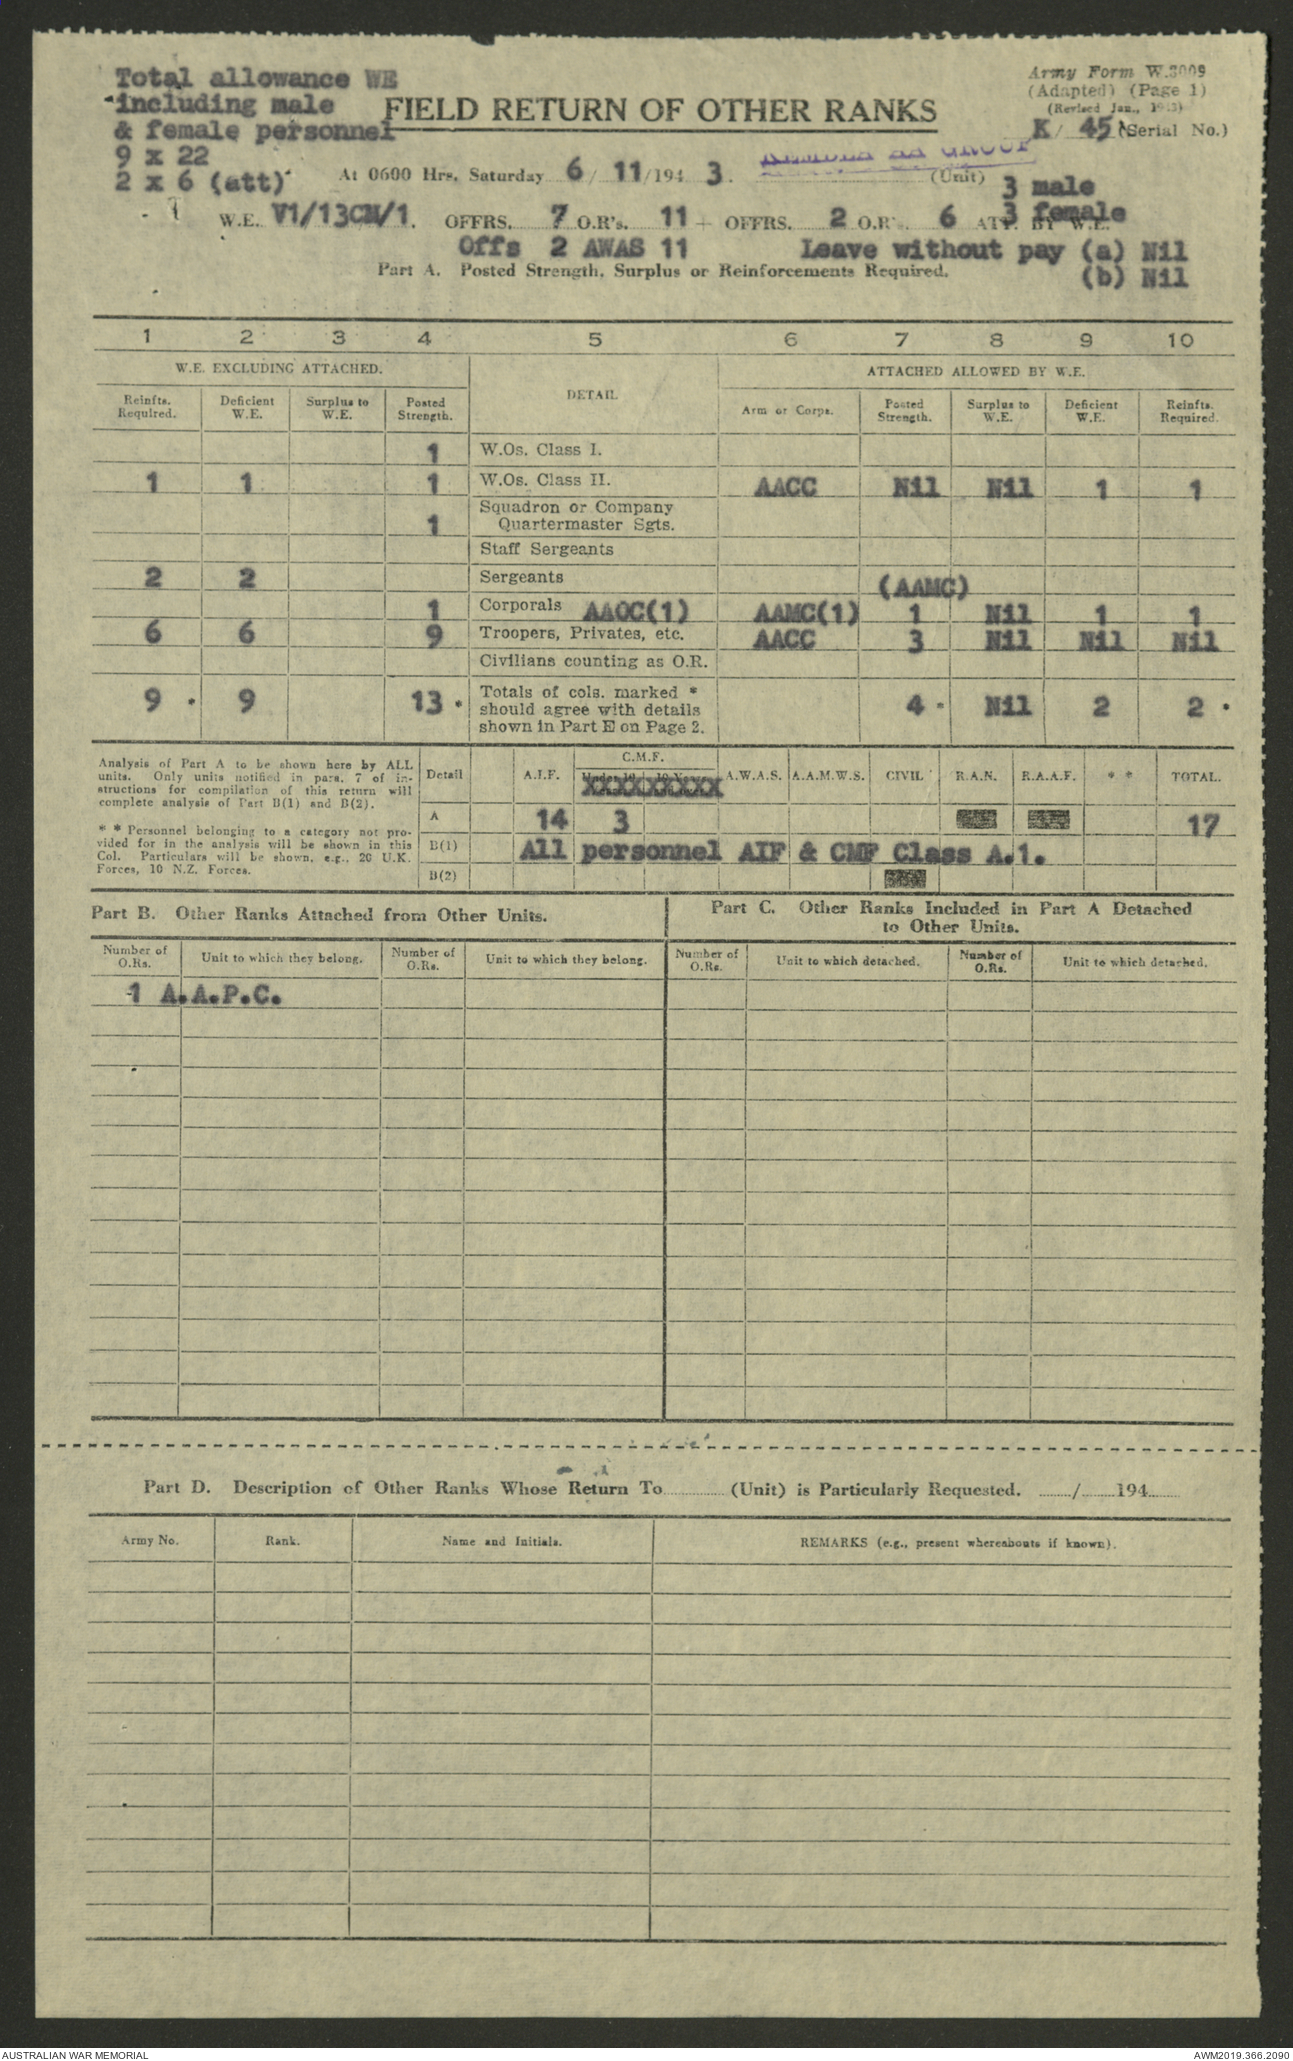 Total allowance WE
including male
& female personnel
9 x 22
2 x 6 (att)
FIELD RETURN OF OTHER RANKS
Army Form W.3009
(Adapted) (Page 1)
(Revised Jan., 1943)
K/ 45 (Serial No.)
At 0600 Hrs. Saturday 6/ 11/194 3.
KEMBLA AA GROUP
(Unit)
3 male
3 female
W.E. V1/13CM/1. OFFRS. 7 O.R's. 11 — OFFRS. 2 O.R's. 6 ATT. BY W.E.
Offs 2 AWAS 11 Leave without pay (a) Nil
(b) Nil
Part A. Posted Strength, Surplus or Reinforcements Required.
1 2 3 4 5 6 7 8 9 10
W.E. EXCLUDING ATTACHED. DETAIL ATTACHED ALLOWED BY W.E.
Reinfts. Required. Deficient W.E. Surplus to W.E. Posted Strength. Arm or Corps. Posted Strength. Surplus to W.E. Deficient W.E. Reinfts. Required.
1 W.Os. Class I.
1 1 1 W.Os. Class II. AACC Nil Nil 1 1
1 Squadron or Company
Quartermaster Sgts.
Staff Sergeants
2 2 Sergeants (AAMC)
1 Corporals AAOC(1) AAMC(1) 1 Nil 1 1
6 6 9 Troopers, Privates, etc. AACC 3 Nil Nil Nil
Civilians counting as O.R.
9 * 9 13 * Totals of cols. marked * 4 * Nil 2 2 *
should agree with details
shown in Part E on Page 2.
Analysis of Part A to be shown here by ALL
units. Only units notified in para. 7 of in-
structions for compilation of this return will
complete analysis of Part B(1) and B(2).
* * Personnel belonging to a category not pro-
vided for in the analysis will be shown in this
Col. Particulars will be shown, e.g., 20 U.K.
Forces, 10 N.Z. Forces.
Detail A.I.F. C.M.F. A.W.A.S. A.A.M.W.S. CIVIL R.A.N. R.A.A.F. * * TOTAL.
XXXXXXXXX
A 14 3 17
B(1) All personnel AIF & CMF Class A.1.
B(2)
Part B. Other Ranks Attached from Other Units.
Part C. Other Ranks Included in Part A Detached
to Other Units.
Number of O.Rs. Unit to which they belong. Number of O.Rs. Unit to which they belong. Number of O.Rs. Unit to which detached. Number of O.Rs. Unit to which detached.
1 A.A.P.C.
Part D. Description of Other Ranks Whose Return To (Unit) is Particularly Requested. / 194
Army No. Rank. Name and Initials. REMARKS (e.g., present whereabouts if known).
AUSTRALIAN WAR MEMORIAL
AWM2019.366.2090